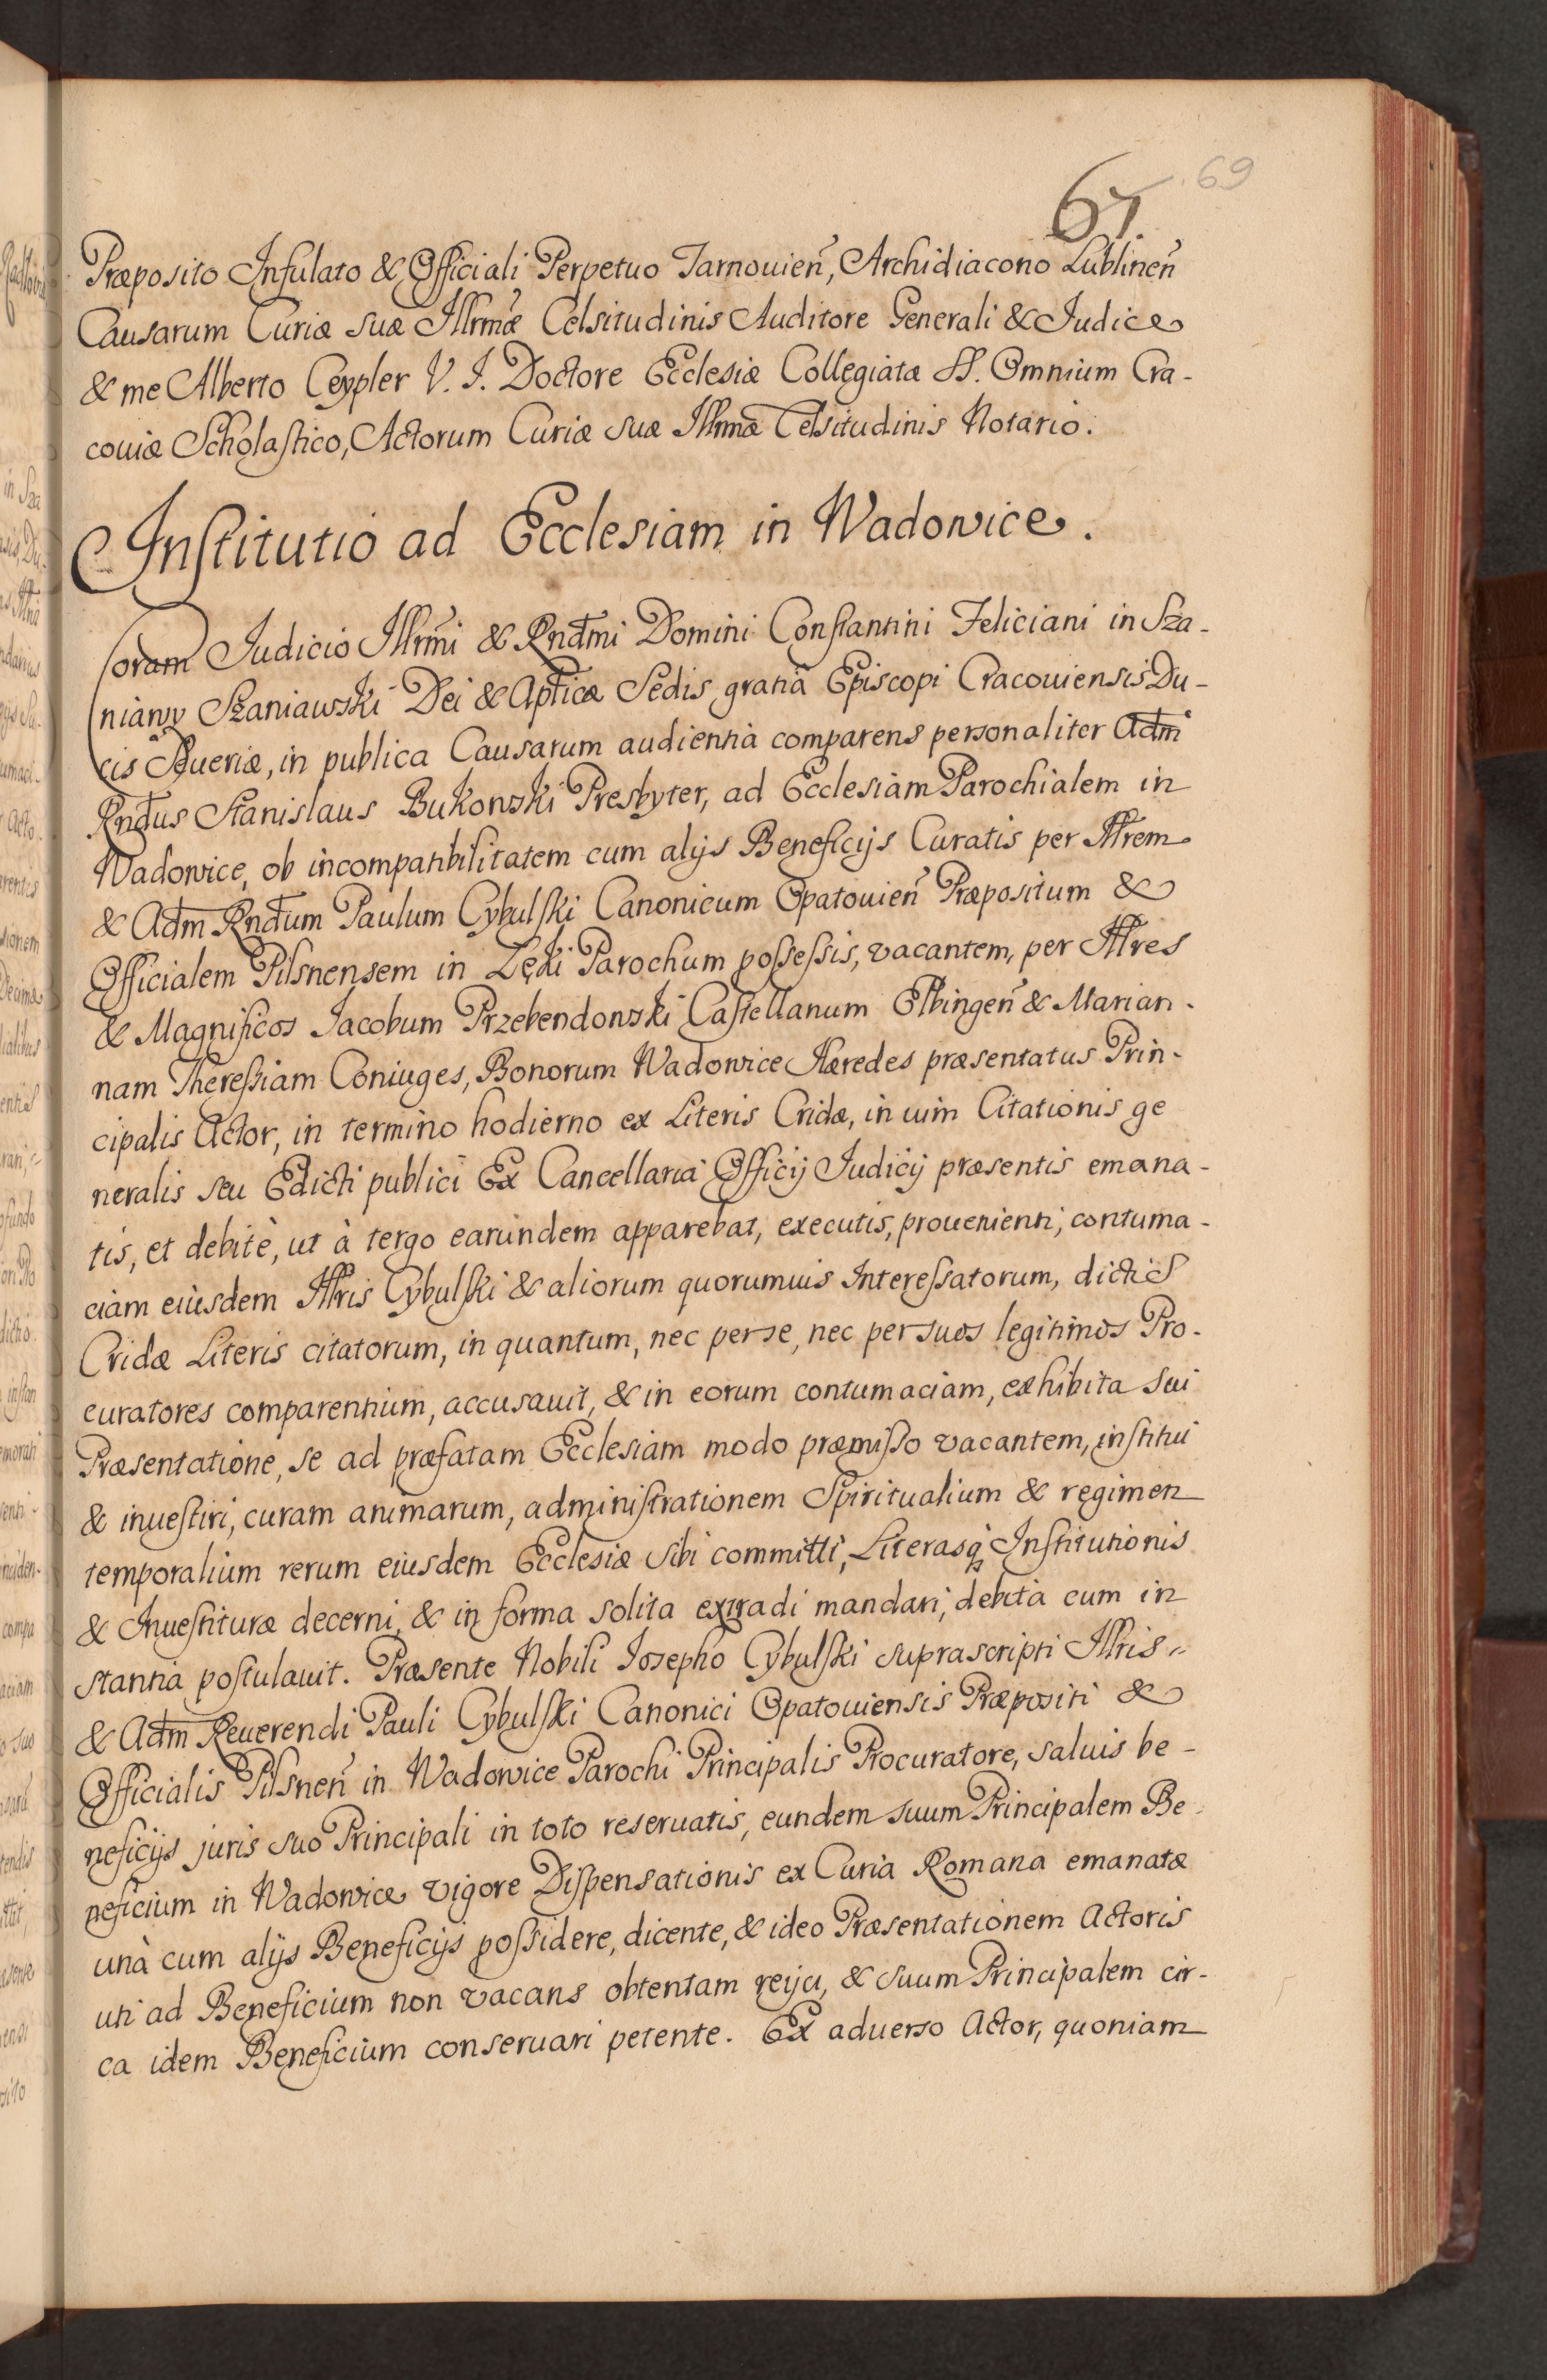 67. 69
Præposito Infulato & Officiali Perpetuo Tarnouień, Archidiacono Lublineń
Causarum Curiæ suæ Illrmæ Celsitudinis Auditore Generali & Judice
& me Alberto Ceypler V. J. Doctore Ecclesiæ Collegiatæ SS. Omnium Cra-
couiæ Scholastico, Actorum Curiæ suæ Illrmæ Celsitudinis Notario.
Institutio ad Ecclesiam in Wadowice.
Coram Judicio Illrmi & Rndmi Domini Constantini Feliciani in Sza-
niawy Szaniawski Dei & Apticæ Sedis gratiâ Episcopi Cracouiensis Du-
cis Seueriæ, in publica Causarum audientia comparens personaliter Adm
Rndus Stanislaus Bukowski Presbyter, ad Ecclesiam Parochialem in
Wadowice, ob incompatibilitatem cum alijs Beneficijs Curatis per Illrem
& Adm Rndum Paulum Cybulski Canonicum Opatouień Præpositum &
Officialem Pilsnensem in Łęki Parochum possessis, vacantem, per Illres
& Magnificos Jacobum Przebendowski Castellanum Elbingeń & Marian-
nam Theressiam Coniuges, Bonorum Wadowice Hæredes præsentatus Prin-
cipalis Actor, in termino hodierno ex Literis Cridæ, in uim Citationis ge
neralis seu Edicti publici Ex Cancellaria Officij Judicij præsentis emana-
tis, et debitè, ut à tergo earundem apparebat, executis, prouenienti, contuma-
ciam eiusdem Illris Cybulski & aliorum quorumuis Interessatorum, dictis
Cridæ Literis citatorum, in quantum, nec per se, nec per suos legitimos Pro-
curatores comparentium, accusauit, & in eorum contumaciam, exhibita sui
Præsentatione, se ad præfatam Ecclesiam modo præmisso vacantem, institui
& inuestiri, curam animarum, administrationem Spiritualium & regimen
temporalium rerum eiusdem Ecclesiæ sibi committi, Literasq; Institutionis
& Inuestituræ decerni, & in forma solita extradi mandari, debita cum in
stantia postulauit. Præsente Nobili Josepho Cybulski suprascripti Illris
& Adm Reuerendi Pauli Cybulski Canonici Opatouiensis Præpositi &
Officialis Pilsneń in Wadowice Parochi Principalis Procuratore, saluis be-
neficijs juris suo Principali in toto reseruatis, eundem suum Principalem Be-
neficium in Wadowice vigore Dispensationis ex Curia Romana emanatæ
unà cum alijs Beneficijs possidere, dicente, & ideo Præsentationem Actoris
uti ad Beneficium non vacans obtentam reijci, & suum Principalem cir-
ca idem Beneficium conseruari petente. Ex aduerso Actor, quoniam